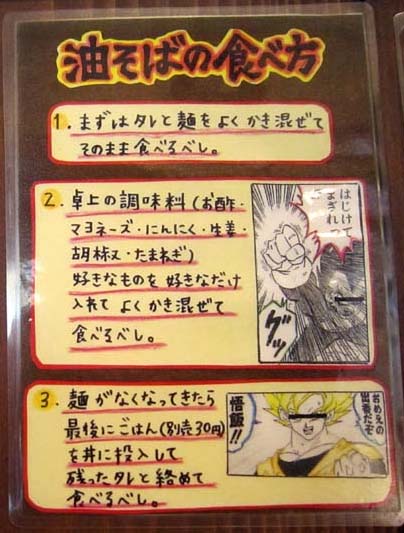 油そばの食べ方
1. まずはタレと麺をよくかき混ぜて
そのまま食べるべし。
2. 卓上の調味料(お酢・
マヨネーズ・にんにく・生姜・
胡椒・たまねぎ)
好きなものを好きなだけ
入れてよくかき混ぜて
食べるべし。
はじけて
まざれっ
グッ
3. 麺がなくなってきたら
最後にごはん(別売30円)
を丼に投入して
残ったタレと絡めて
食べるべし。
おめえの
出番だぞ
悟飯!!